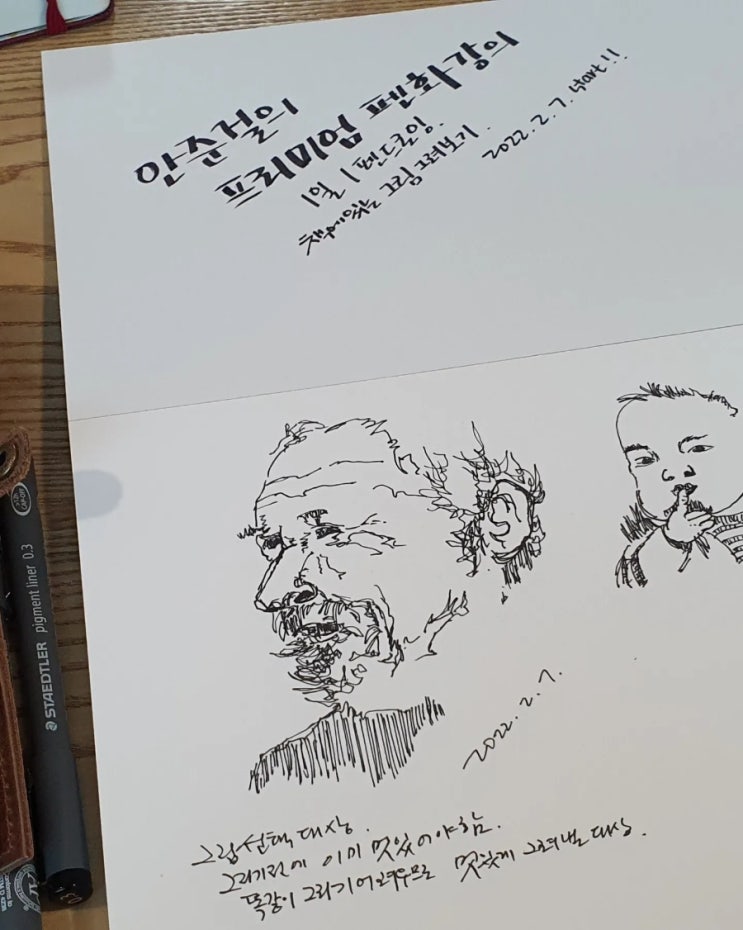 안준걸의
프리미엄 펜화강의
1일 1펜드로잉.
책에있는 그림 그려보기.
2022. 2. 7. start!!
2022. 2. 7.
그림선택 대상.
그리기전에 이미 멋있어야함.
똑같이 그리기 어려우므로 멋있게 그려낼 대상.
STAEDTLER pigment liner 0.3
0.3